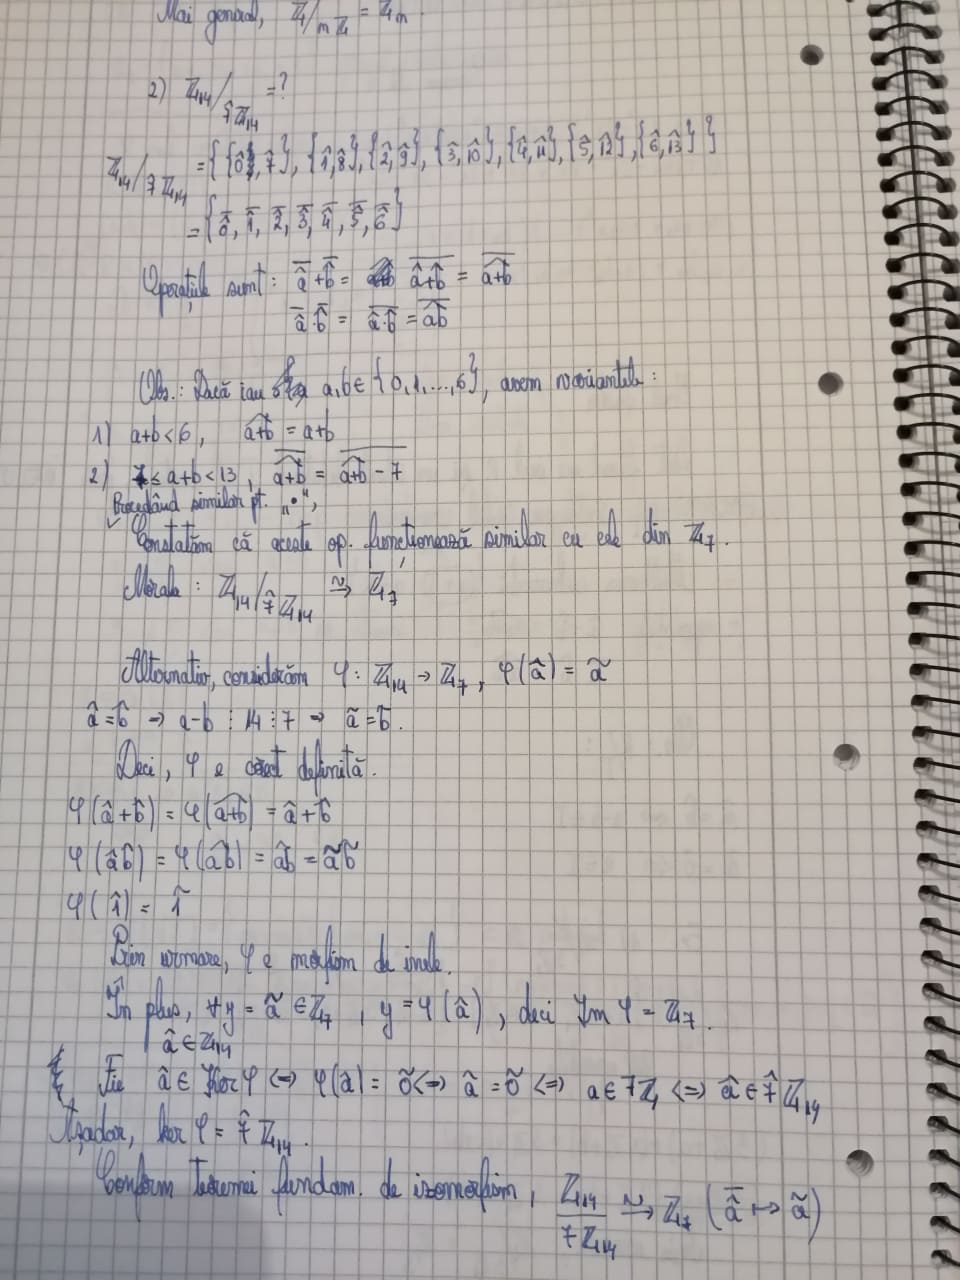 Mai general, ℤ/mℤ = ℤₘ.
2) ℤ₁₄/7̂ℤ₁₄ = ?
ℤ₁₄/7ℤ₁₄ = { {0̂, 7̂}, {1̂, 8̂}, {2̂, 9̂}, {3̂, 10̂}, {4̂, 11̂}, {5̂, 12̂}, {6̂, 13̂} }
= { 0̂̅, 1̂̅, 2̂̅, 3̂̅, 4̂̅, 5̂̅, 6̂̅ }
Operațiile sunt: â̅ + b̂̅ = \overline{â+b̂} = \overline{\widehat{a+b}}
â̅ · b̂̅ = \overline{â·b̂} = \overline{\widehat{ab}}
Obs.: Dacă iau a, b ∈ {0, 1, ..., 6}, avem variantele:
1) a+b < 6, \widehat{a+b} = a+b
2) 7 ≤ a+b < 13, \overline{\widehat{a+b}} = \overline{\widehat{a+b} - 7}
Procedând similar pt. „·",
Constatăm că aceste op. funcționează similar cu cele din ℤ₇.
Morala: ℤ₁₄/7̂ℤ₁₄ ⥲ ℤ₇
Alternativ, considerăm φ: ℤ₁₄ → ℤ₇, φ(â) = ã
â = b̂ ⇒ a-b ⋮ 14 ⋮ 7 ⇒ ã = b̃.
Deci, φ e corect definită.
φ(â + b̂) = φ(\widehat{a+b}) = â + b̂
φ(âb̂) = φ(\widehat{ab}) = \widetilde{ab} = ãb̃
φ(1̂) = 1̃
Prin urmare, φ e morfism de inele.
În plus, ∀y = ã ∈ ℤ₇, y = φ(â), deci Im φ = ℤ₇.
â ∈ ℤ₁₄
Fie â ∈ Ker φ ⇔ φ(â) = 0̃ ⇔ ã = 0̃ ⇔ a ∈ 7ℤ ⇔ â ∈ 7̂ℤ₁₄
Așadar, ker φ = 7̂ℤ₁₄.
Conform teoremei fundam. de izomorfism, ℤ₁₄/7ℤ₁₄ ⥲ ℤ₇ (â̅ ↦ ã)